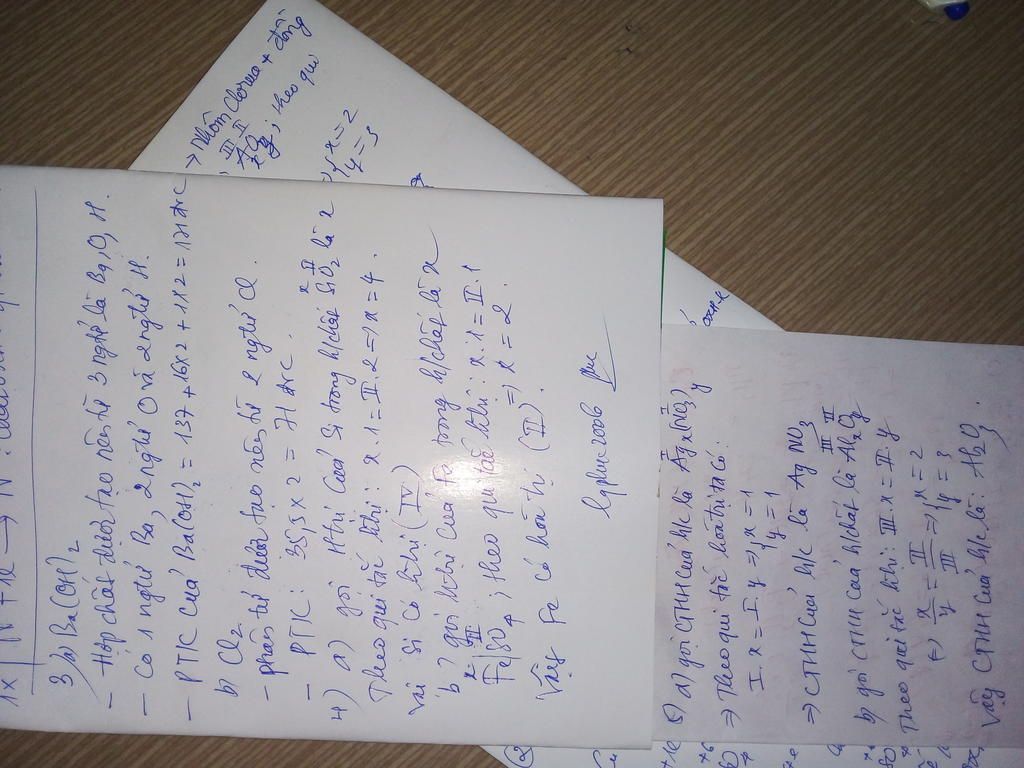 3) a) Ba(OH)2
- Hợp chất được tạo nên từ 3 ngtố là Ba, O, H.
- Có 1 ngtử Ba, 2 ngtử O và 2 ngtử H.
- PTK của Ba(OH)2 = 137 + 16x2 + 1x2 = 171 đvC
b) Cl2
- phân tử được tạo nên từ 2 ngtử Cl.
- PTK: 35,5 x 2 = 71 đvC.
4) a) gọi htrị của Si trong h/chất SiO2 là x
x II
Theo qui tắc htrị: x.1 = II.2 => x = 4.
Vậy Si có htrị (IV)
b) gọi htrị của Fe trong h/chất là x
x II
FeSO4; theo qui tắc htrị: x.1 = II.1
=> x = 2.
Vậy Fe có hóa trị (II).
lqphuc2006
5) a) gọi CTHH của h/c là Agx(NO3)y
I I
=> Theo qui tắc hóa trị ta có:
I.x = I.y => x = 1
y = 1
=> CTHH của h/c là AgNO3
b) gọi CTHH của h/chất là AlxOy
III II
Theo qui tắc htrị: III.x = II.y
(=) x/y = II/III => x = 2
y = 3
Vậy CTHH của h/c là: Al2O3
-> Nhôm Clorua + đồng
III II
; theo qui
x = 2
y = 3